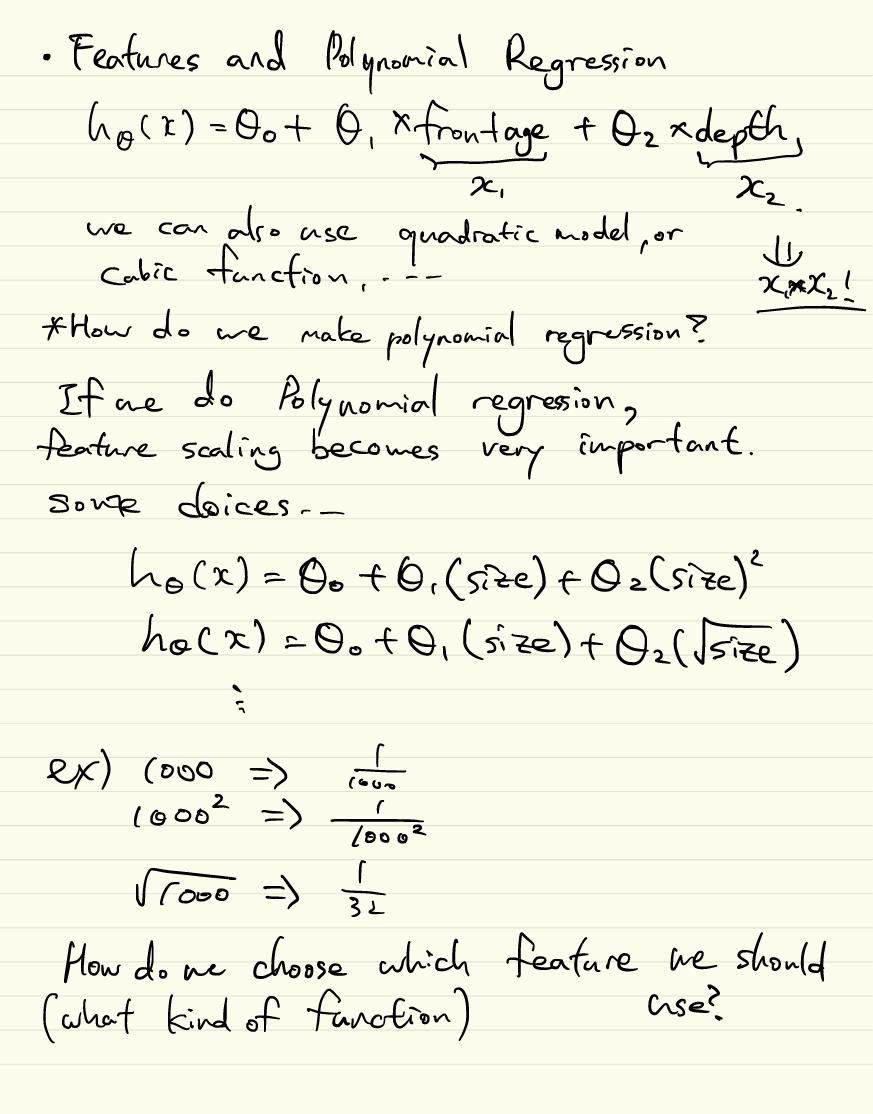 • Features and Polynomial Regression
hθ(x) = θ₀ + θ₁ × frontage + θ₂ × depth,
x₁ x₂.
we can also use quadratic model, or ⇓
cubic function, .---- x₁*x₂!
*How do we make polynomial regression?
If we do Polynomial regression,
feature scaling becomes very important.
some choices.--
hθ(x) = θ₀ + θ₁(size) + θ₂(size)²
hθ(x) = θ₀ + θ₁(size) + θ₂(√size)
⋮
ex) 1000 => 1/1000
1000² => 1/1000²
√1000 => 1/32
How do we choose which feature we should
(what kind of function) use?